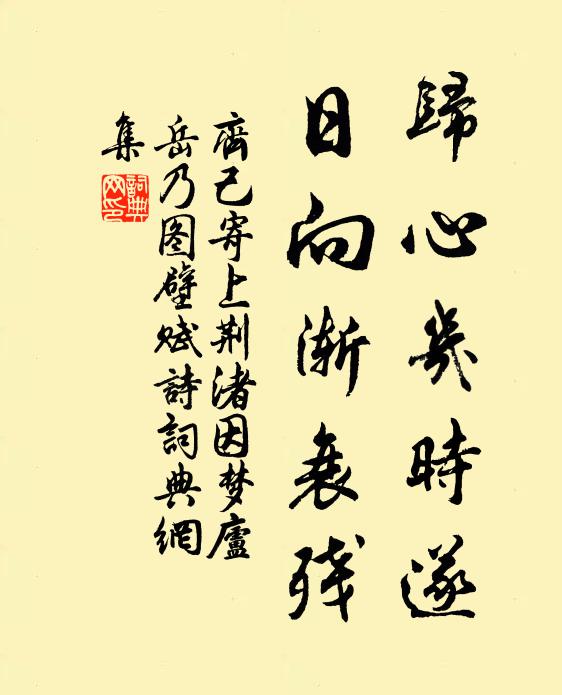 歸心幾時遂
日向漸衰残
齊己寄上荆渚因梦廬
岳乃图壁赋詩詞典網
集
詞典
网印